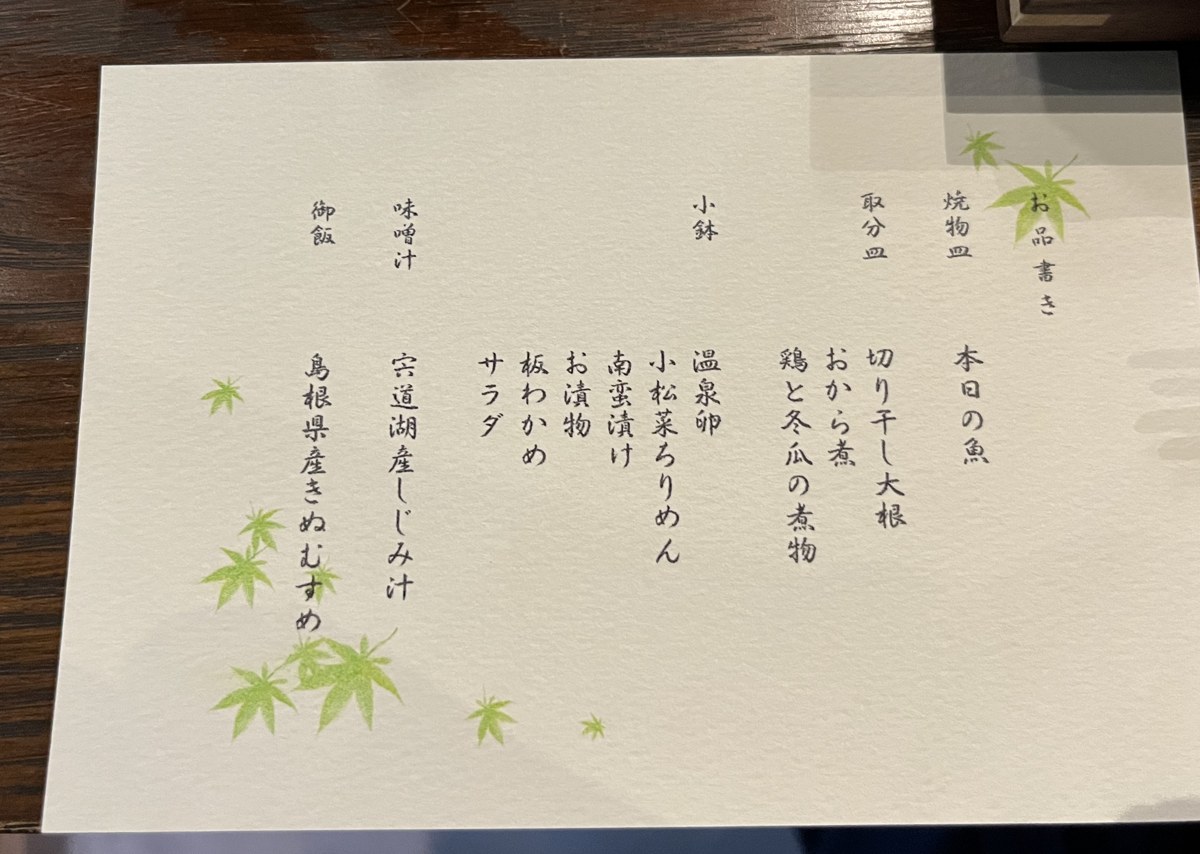 お品書き
焼物皿
本日の魚
取分皿
切り干し大根
おから煮
鶏と冬瓜の煮物
小鉢
温泉卵
小松菜ちりめん
南蛮漬け
お漬物
板わかめ
サラダ
味噌汁
宍道湖産しじみ汁
御飯
島根県産きぬむすめ